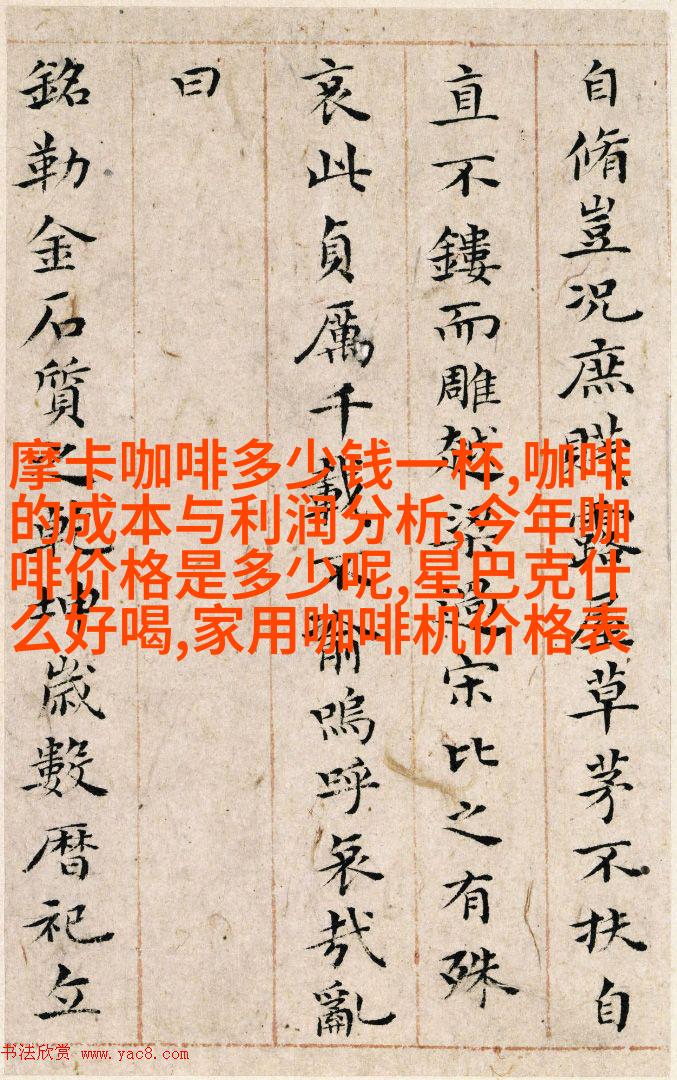 自脩豈況庶賤露屋草茅不扶自
直不鏤而雕越梁過宋比之有殊
哀此貞厲千載不渝嗚呼哀哉亂
曰
銘勒金石質之乾坤歲數曆祀立
摩卡咖啡多少钱一杯,咖啡
的成本与利润分析,今年咖
啡价格是多少呢,星巴克什
么好喝,家用咖啡机价格表
书法欣赏 www.yac8.com